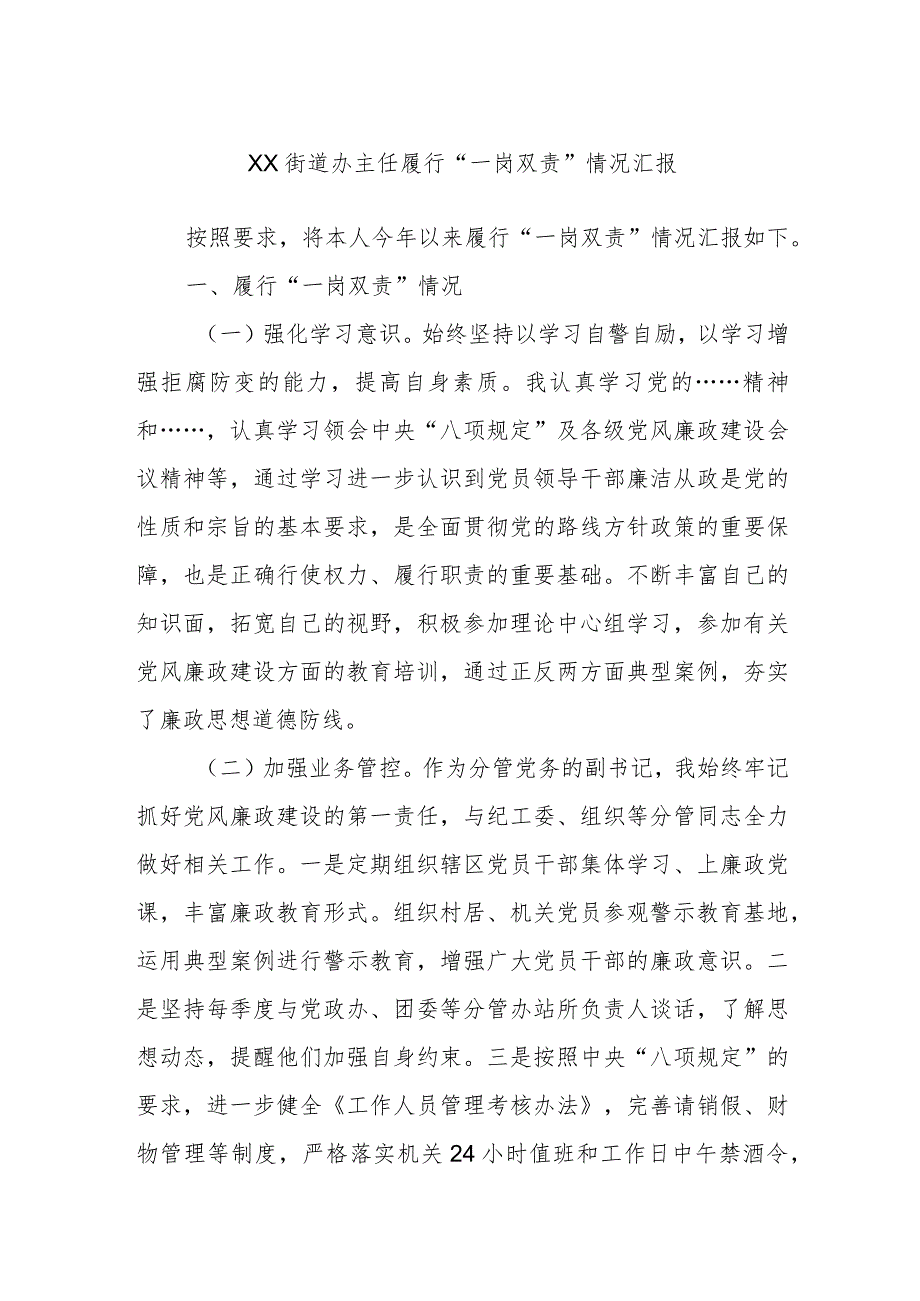 XX 街道办主任履行“一岗双责”情况汇报
按照要求，将本人今年以来履行“一岗双责”情况汇报如下。
一、履行“一岗双责”情况
（一）强化学习意识。始终坚持以学习自警自励，以学习增
强拒腐防变的能力，提高自身素质。我认真学习党的……精神
和……，认真学习领会中央“八项规定”及各级党风廉政建设会
议精神等，通过学习进一步认识到党员领导干部廉洁从政是党的
性质和宗旨的基本要求，是全面贯彻党的路线方针政策的重要保
障，也是正确行使权力、履行职责的重要基础。不断丰富自己的
知识面，拓宽自己的视野，积极参加理论中心组学习，参加有关
党风廉政建设方面的教育培训，通过正反两方面典型案例，夯实
了廉政思想道德防线。
（二）加强业务管控。作为分管党务的副书记，我始终牢记
抓好党风廉政建设的第一责任，与纪工委、组织等分管同志全力
做好相关工作。一是定期组织辖区党员干部集体学习、上廉政党
课，丰富廉政教育形式。组织村居、机关党员参观警示教育基地，
运用典型案例进行警示教育，增强广大党员干部的廉政意识。二
是坚持每季度与党政办、团委等分管办站所负责人谈话，了解思
想动态，提醒他们加强自身约束。三是按照中央“八项规定”的
要求，进一步健全《工作人员管理考核办法》，完善请销假、财
物管理等制度，严格落实机关 24 小时值班和工作日中午禁酒令，